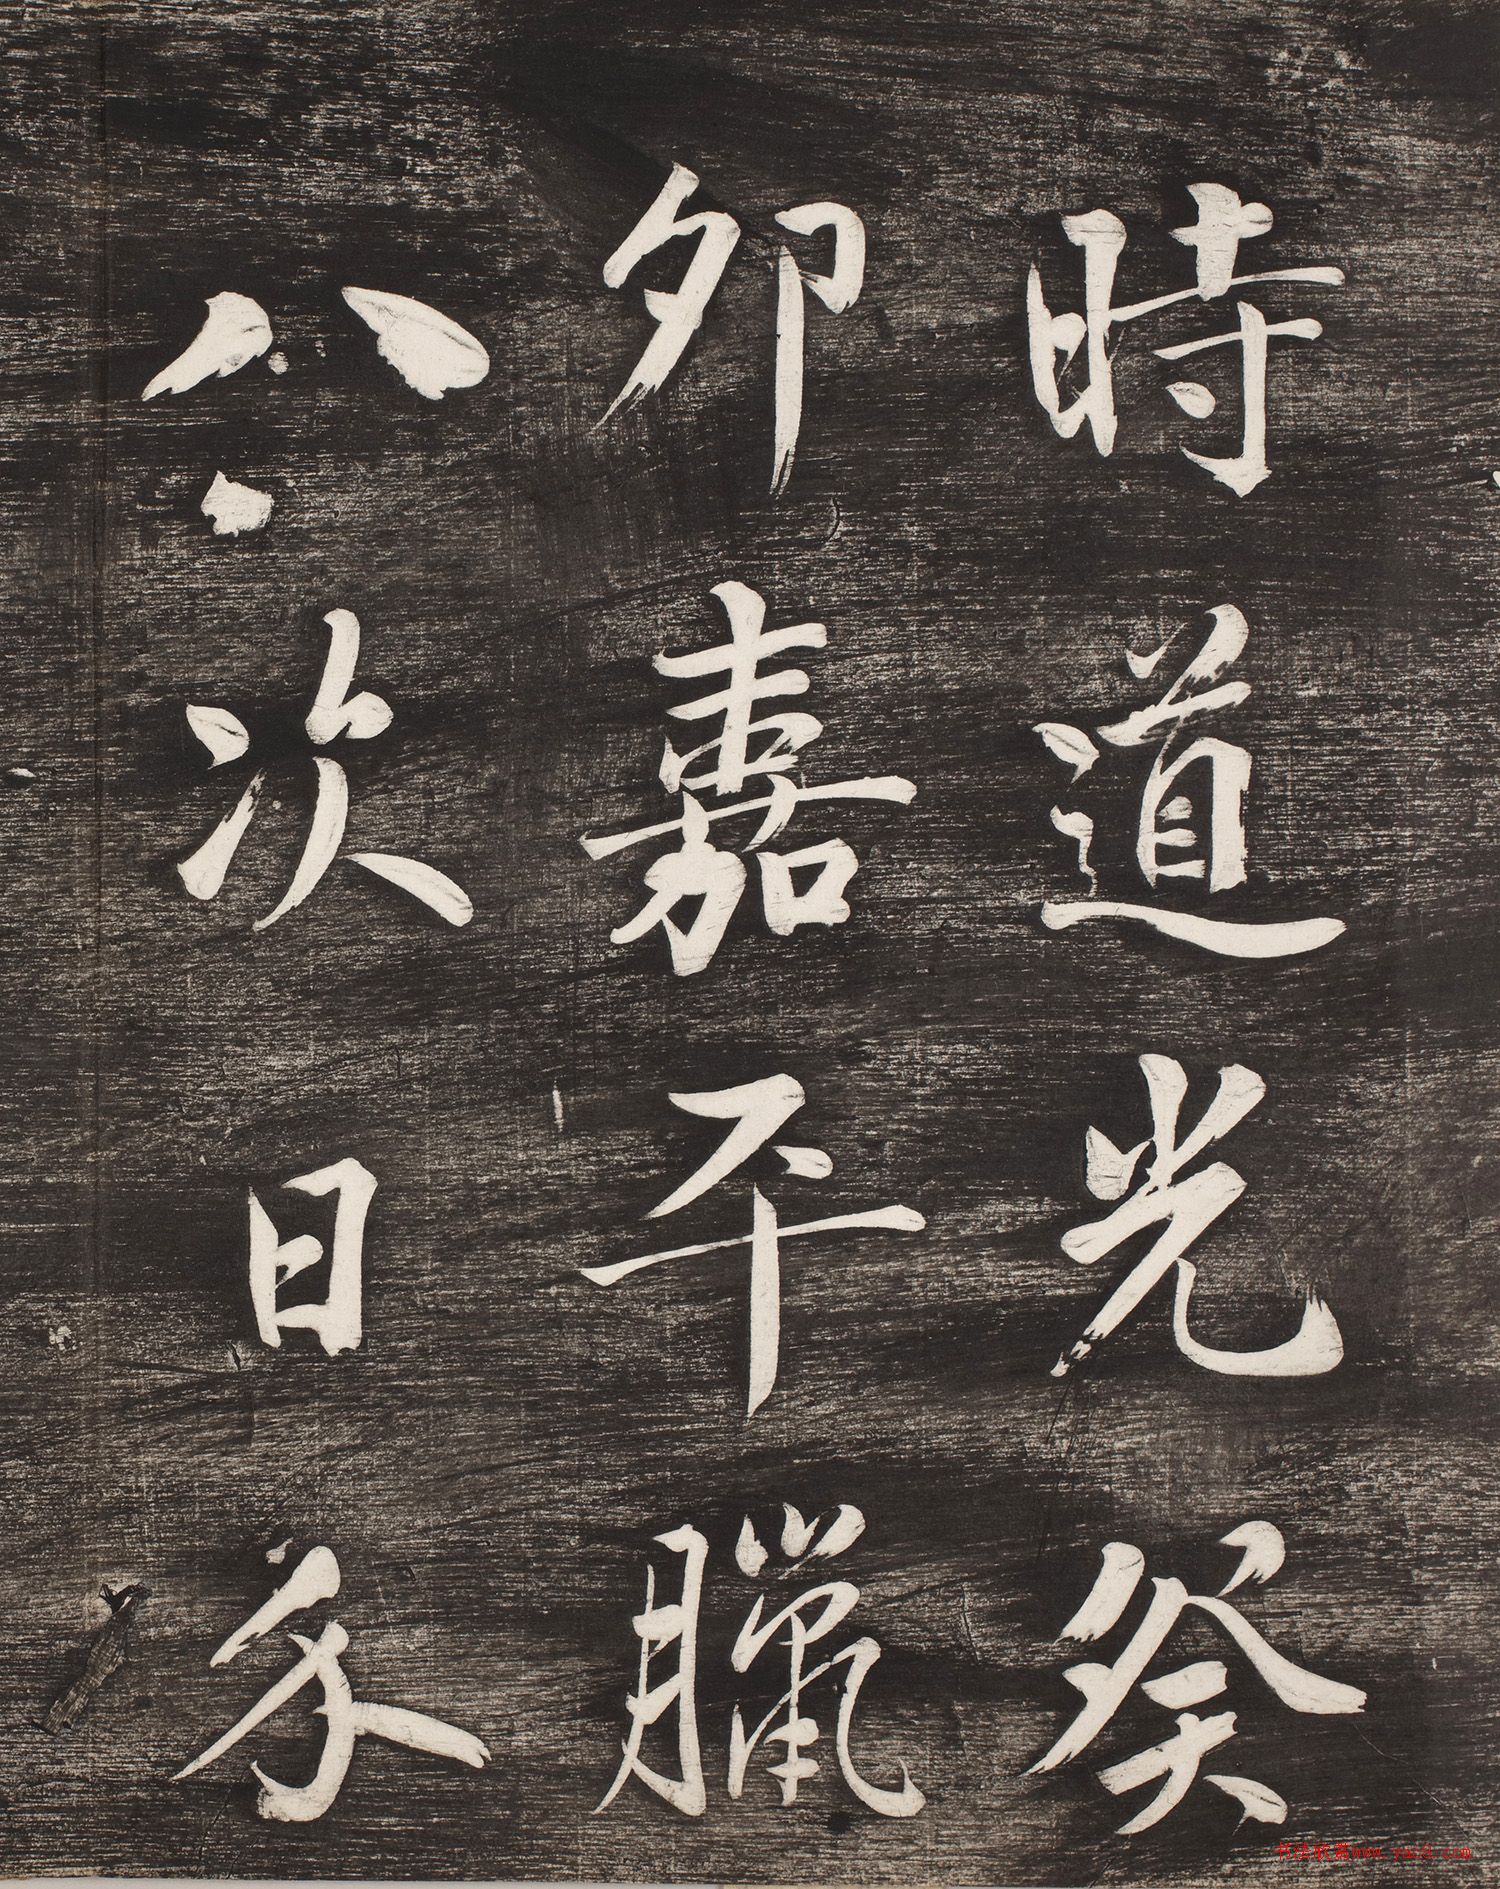 時道光癸
卯嘉平臘
八次日
书法欣赏www.yac8.com